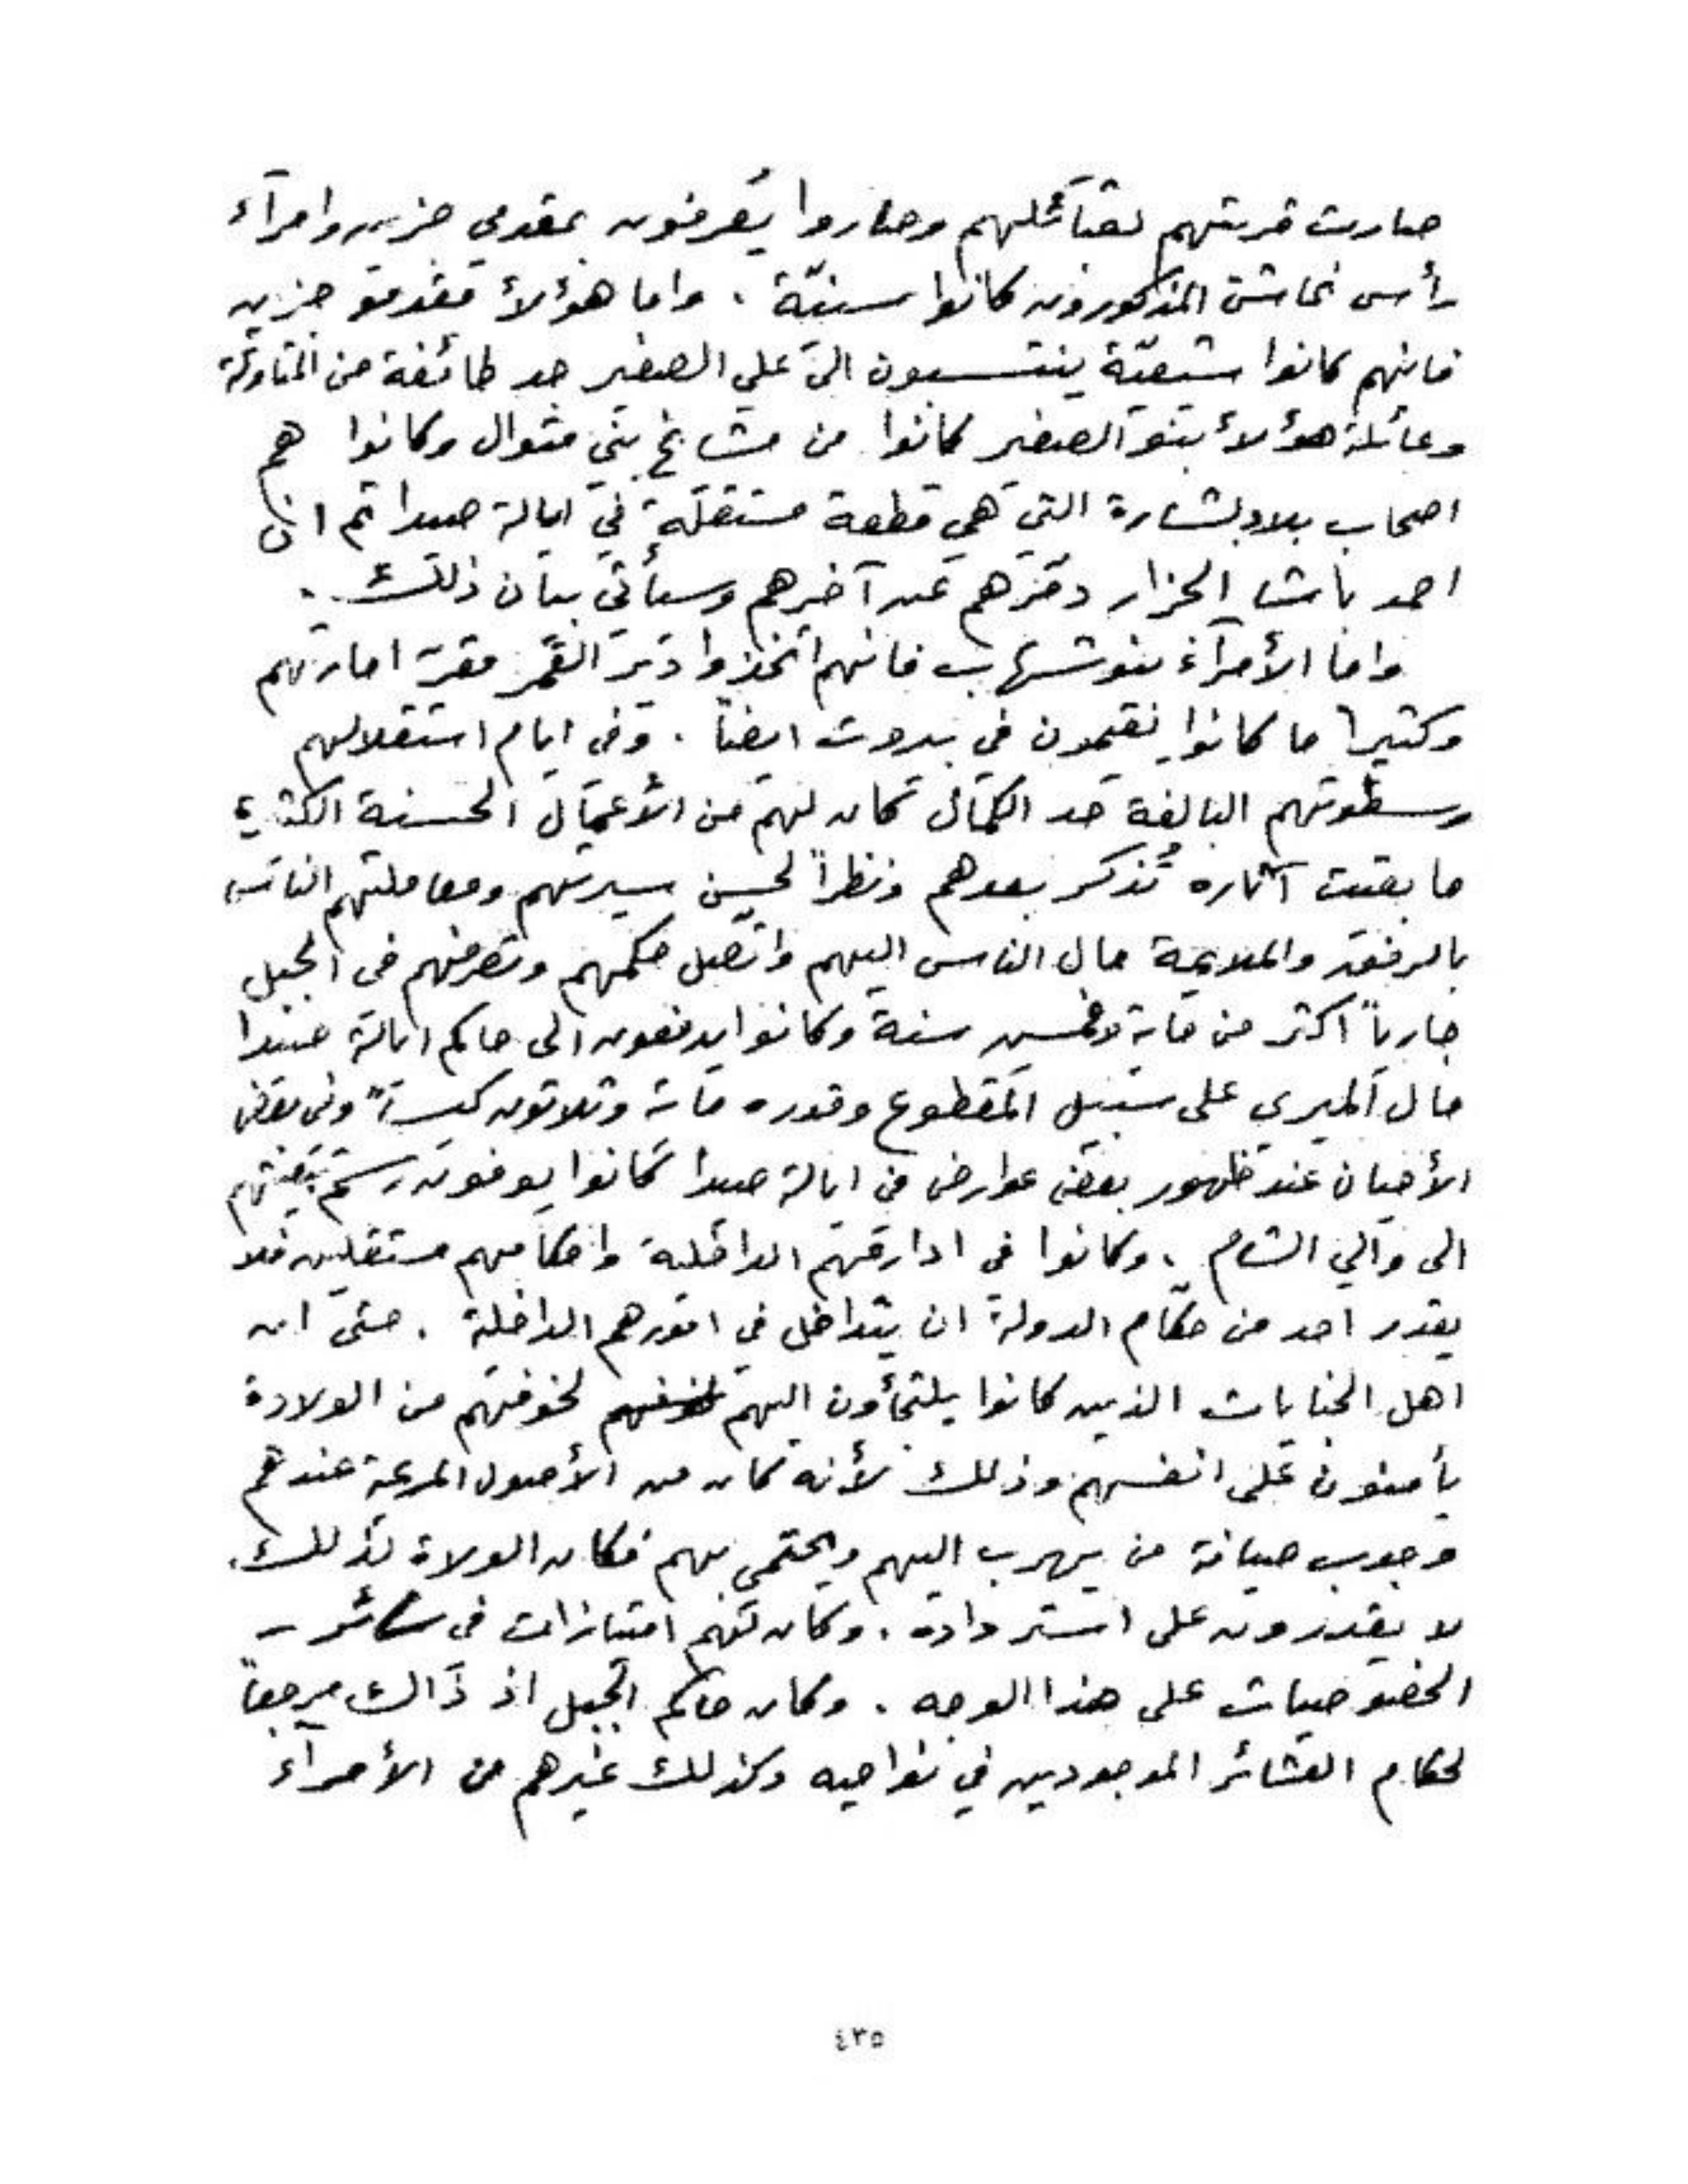 صارت قريتهم لقبائلهم وصاروا يُعرفون بمقدمي جزين وامرآء
رأس نحاش المذكورون كانوا سنيّة . واما هؤلأ مقدمو جزين
فانهم كانوا شيعيّة ينتسبون الى علي الصغير جد طائفة من المتاولة
وعائلة هؤلأ بنو الصغير كانوا من مشايخ بني متوال وكانوا هم
اصحاب بلاد بشارة التي هي قطعة مستقلّة في ايالة صيدا ثم ان
احمد باشا الجزار دمّرهم عن آخرهم وسيأتي بيان ذلك .
واما الأمرآء بنو شهاب فانهم اتخذوا دير القمر مقرّ امارتهم
وكثيراً ما كانوا يقيمون في بيروت ايضاً . وفى ايام استقلالهم
وسطوتهم البالغة حد الكمال كان لهم من الأعمال الحسنة الكثيرة
ما بقيت آثاره تُذكر بعدهم ونظراً لحسن سيرتهم ومعاملتهم الناس
بالرفق والملايمة مال الناس اليهم واتّصل حكمهم وتصرفهم فى الجبل
جارياً اكثر من ماية وخمسين سنة وكانوا يدفعون الى حاكم ايالة صيدا
مال الميري على سبيل المقطوع وقدره ماية وثلاثون كيساً وفى بعض
الأحيان عند ظهور بعض عوارض فى ايالة صيدا كانوا يوفون رسم تبعيّتهم
الى والي الشام . وكانوا في ادارتهم الداخلية واحكامهم مستقلين فلا
يقدر احد من حكّام الدولة ان يتداخل في امورهم الداخلة . حتى ان
اهل الجنايات الذين كانوا يلتجأون اليهم لخوفهم من الولادة
يأمنون على انفسهم وذلك لأنه كان من الأصول المرعية عندهم
وجوب صيانة من يهرب اليهم ويحتمى بهم فكان الولاة لذلك
لا يقدرون على استرداده . وكان لهم امتيازات فى سائر
الخصوصيات على هذا الوجه . وكان حاكم الجبل اذ ذاك مرجعاً
لحكام العشائر الموجودين في نواحيه وكذلك غيرهم من الأمرآء
٤٣٥